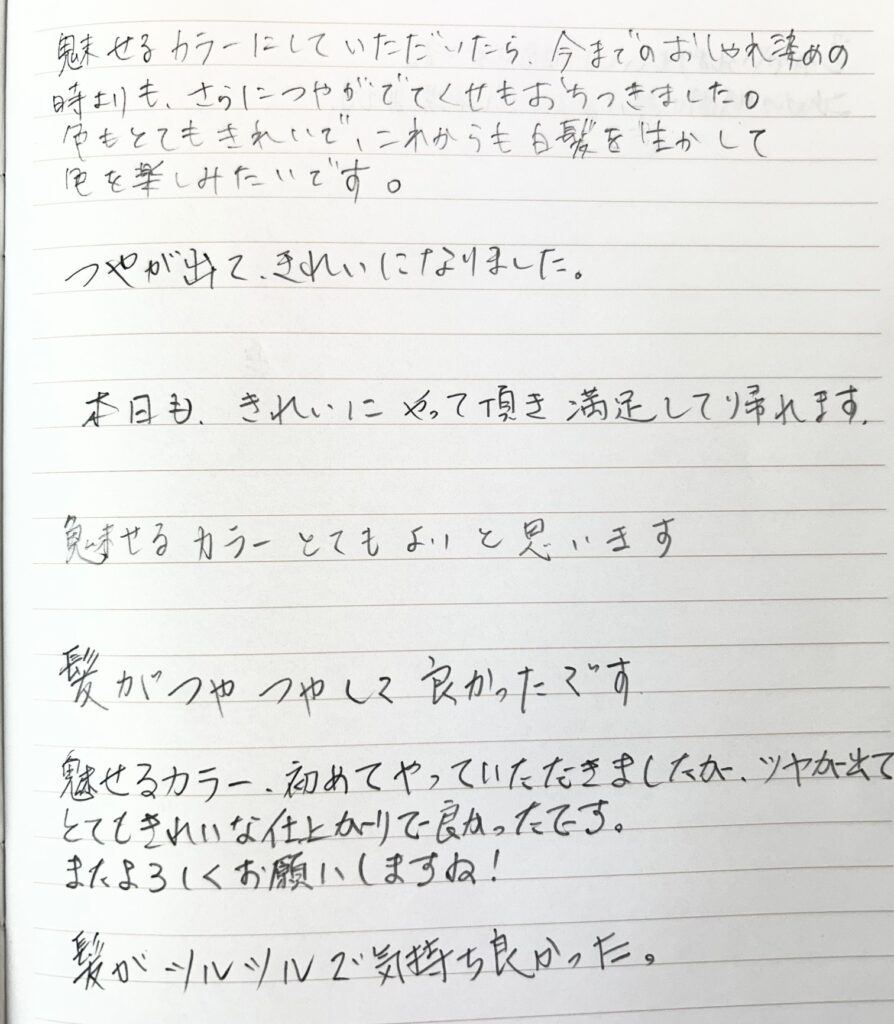 魅せるカラーにしていただいたら、今までのおしゃれ染めの
時よりも、さらにつやがでてくせもおちつきました。
色もとてもきれいで、これからも白髪を生かして
色を楽しみたいです。
つやが出て、きれいになりました。
本日も、きれいにやって頂き満足して帰れます。
魅せるカラーとてもよいと思います
髪がつやつやして良かったです
魅せるカラー、初めてやっていただきましたが、ツヤが出て
とてもきれいな仕上がりで良かったです。
またよろしくお願いしますね!
髪がツルツルで気持ち良かった。